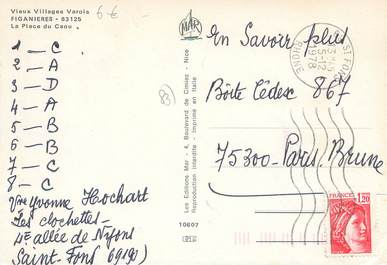 Vieux Villages Varois
FIGANIERES - 83125
La Place du Caou
6-€
1 — C
2 — A
3 — D
4 — A
5 — B
6 — B
7 — C
8 — C
Yvonne Hochart
Les clochettes -
allée de Nyons
Saint-Fons 69190
MAR
Les Editions Mar - 4, Boulevard de Cimiez - Nice
Reproduction interdite - Imprimé en Italie
10607
83
En Savoir plus
Boîte Cédex 867
75300 - Paris. Brune
ST FONS
15-12
1978
RHONE
FRANCE
1,20